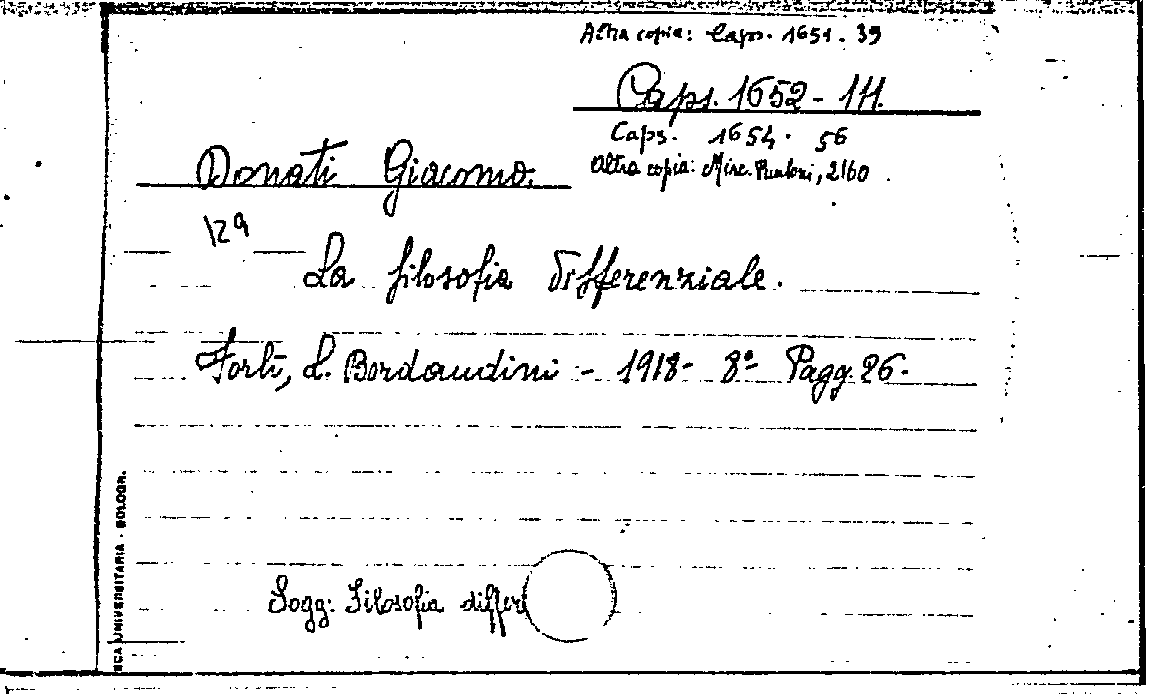 Altra copia: Caps. 1651. 39
Caps. 1652 - 14.
Caps. 1654. 56
Donati Giacomo.
Altra copia: Misc. Ruaboni, 2160.
129
La filosofia differenziale.
Forlì, L. Bordandini - 1918 - 8º Pagg. 26.
Sogg: Filosofia differ
ECA UNIVERSITARIA - BOLOGN.